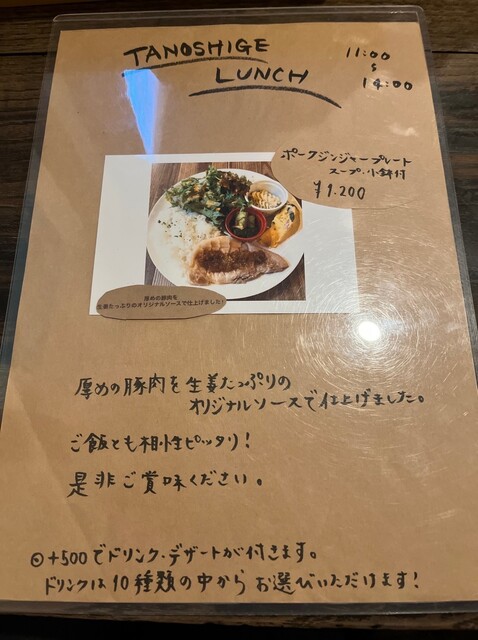 TANOSHIGE
LUNCH
11:00
〜
14:00
ポークジンジャープレート
スープ・小鉢付
¥1.200
厚めの豚肉を
生姜たっぷりのオリジナルソースで仕上げました!
厚めの豚肉を生姜たっぷりの
オリジナルソースで仕上げました。
ご飯とも相性ピッタリ!
是非ご賞味ください。
⊙+500でドリンク・デザートが付きます。
ドリンクは10種類の中からお選びいただけます!